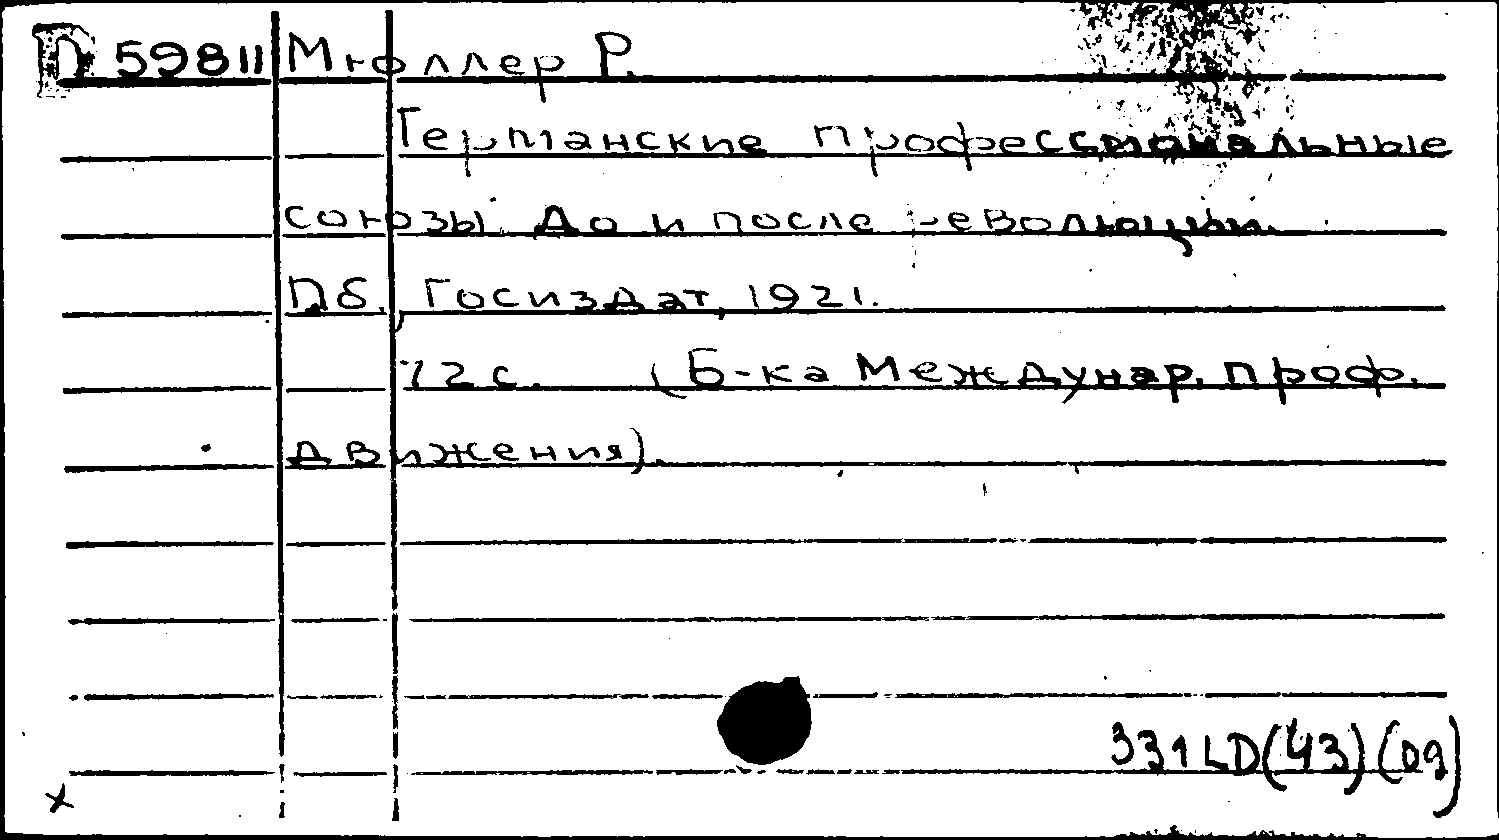 П 59811 Мюллер Р.
Германские профессиональные
союзы. До и после революции.
Пб., Госиздат, 1921.
72 с. (Б-ка Междунар. проф.
движения).
331LD(43)(09)
x